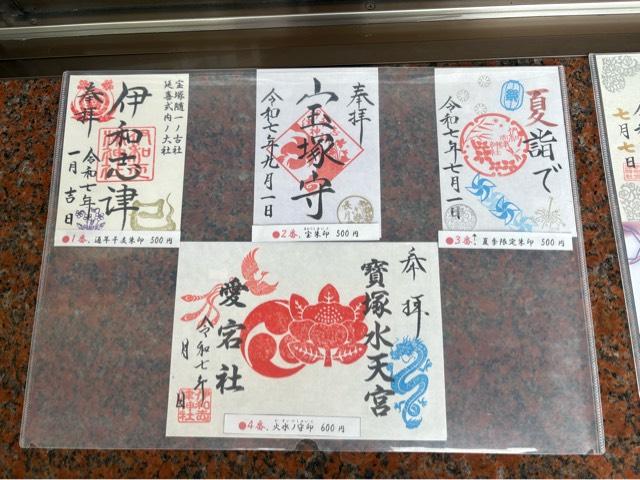 宝塚随一ノ古社
延喜式内ノ大社
伊和志津
奉拝
令和七年
一月吉日
●1番、通年干支朱印 500円
奉拝
小玉塚守
令和七年九月一日
●2番、宝朱印 500円
夏詣で
令和七年七月一日
●3番、夏季限定朱印 500円
奉拝
寶塚水天宮
愛宕社
令和七年
月 日
●4番、火水ノ守印 600円
七月七日